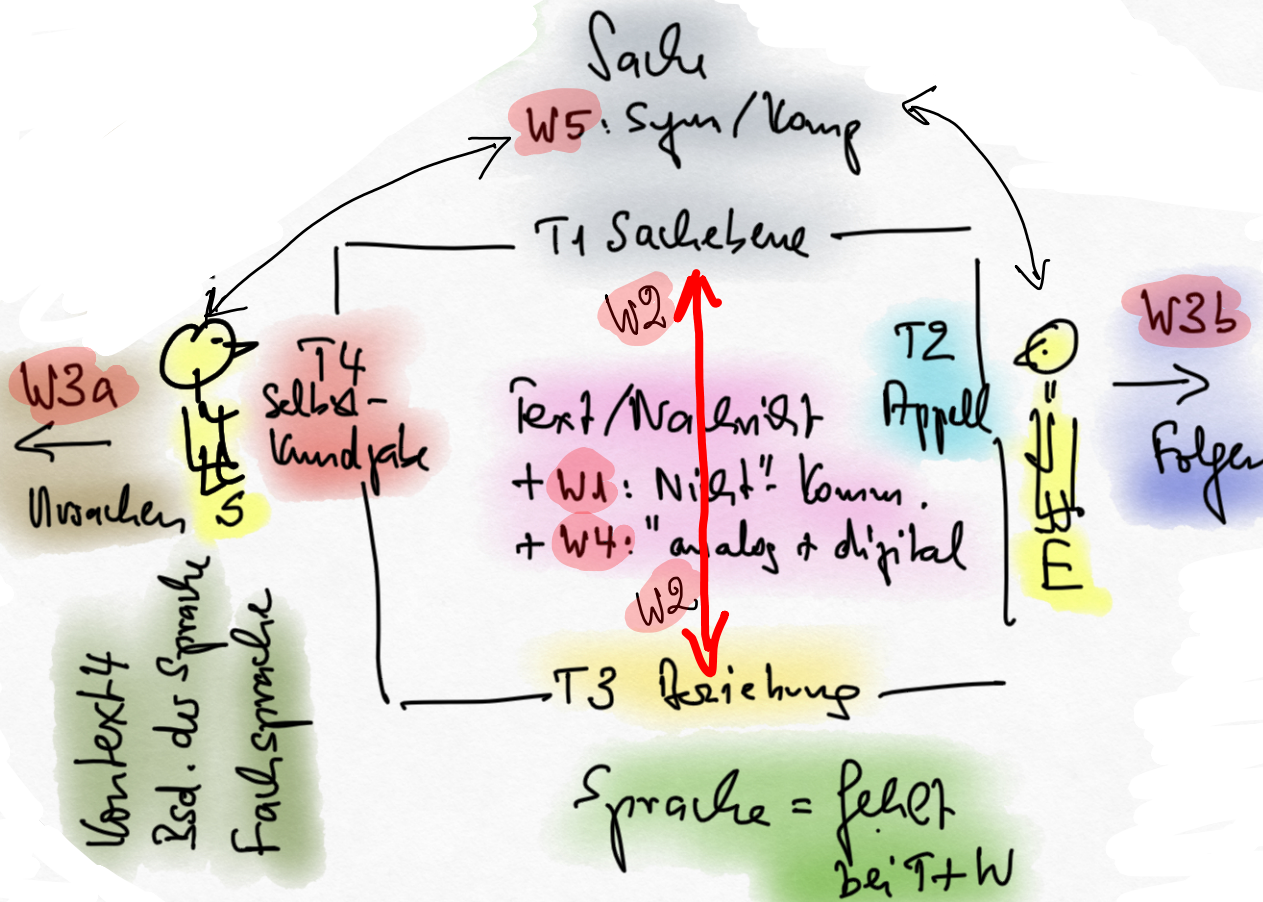 Sache
W5: Sym/Komp
T1 Sachebene
W2
W3a
Ursachen
S
T4
Selbst-
kundgabe
Text/Nachricht
+ W1: Nicht"-Komm.
+ W4: "analog + digital
W2
T2
Appell
E
W3b
Folgen
T3 Beziehung
Kontext 4
Bsd. der Sprache
Fachsprache
Sprache = fehlt
bei T+W